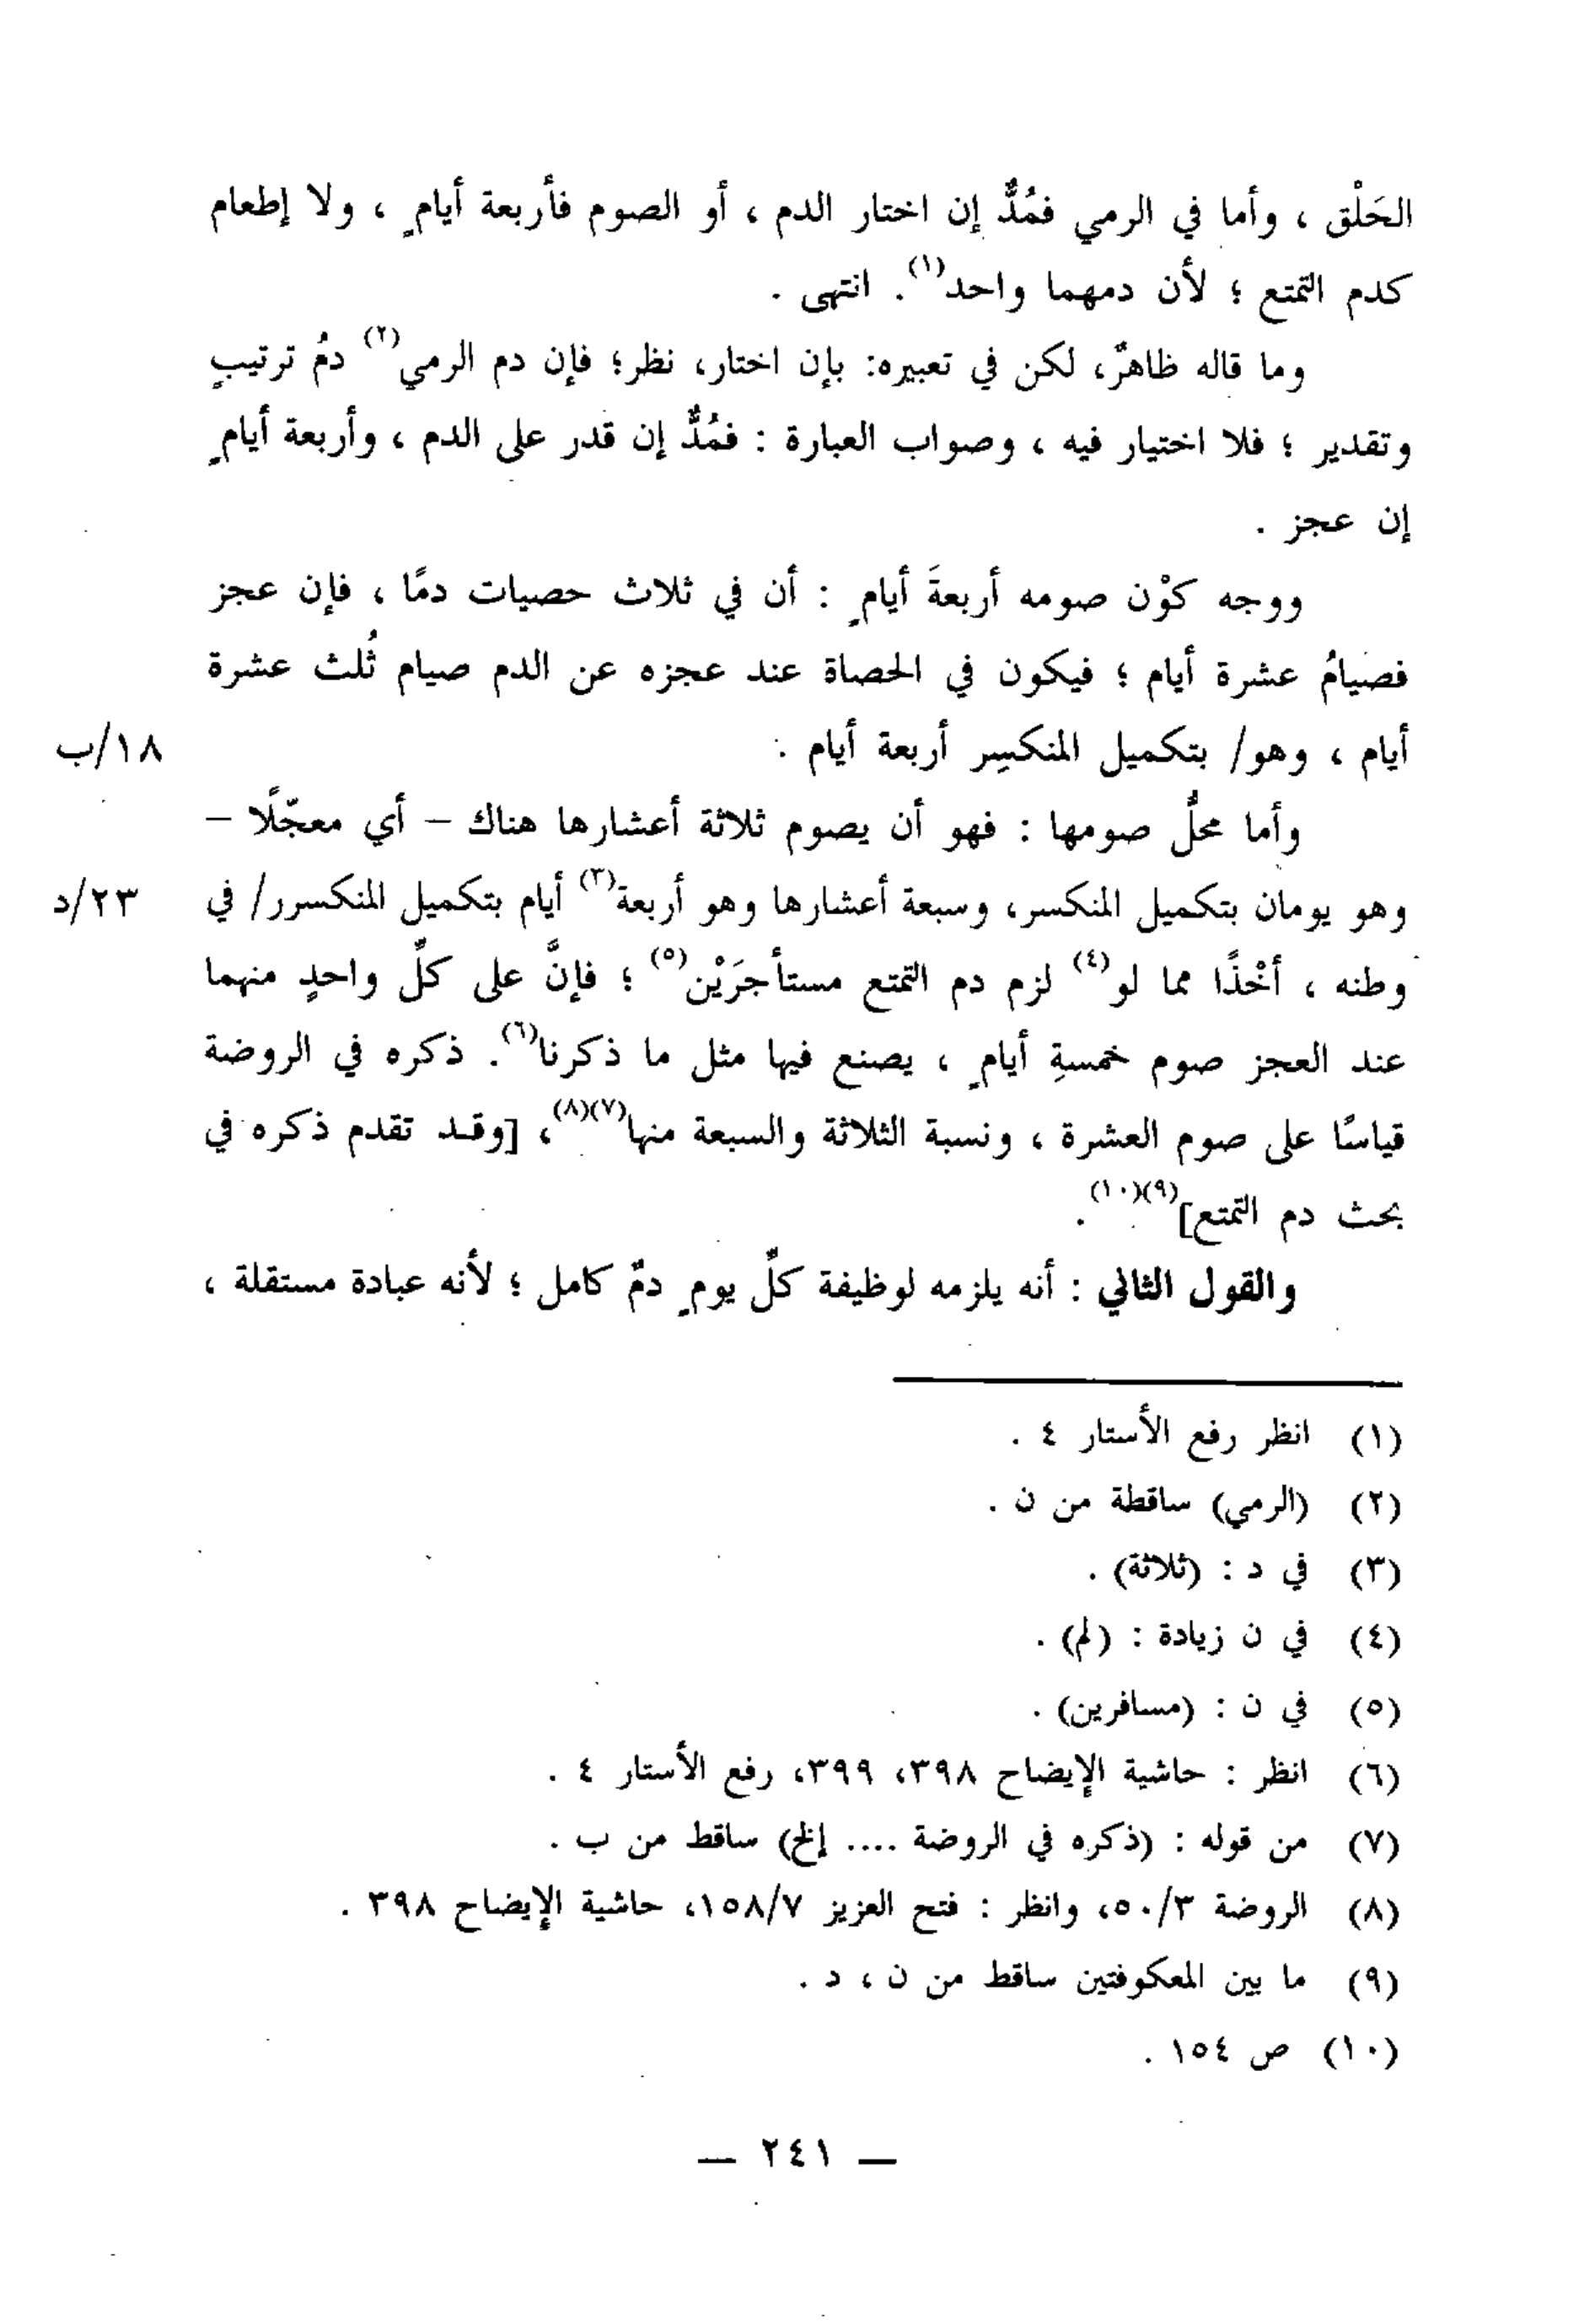 الحَلْق ، وأما في الرمي فمُدٌّ إن اختار الدم ، أو الصوم فأربعة أيامٍ ، ولا إطعام
كدم التمتع ؛ لأن دمهما واحد(١). انتهى .
وما قاله ظاهرٌ، لكن في تعبيره: بإن اختار، نظر؛ فإن دم الرمي(٢) دمُ ترتيبٍ
وتقدير ؛ فلا اختيار فيه ، وصواب العبارة : فمُدٌّ إن قدر على الدم ، وأربعة أيامٍ
إن عجز .
ووجه كوْن صومه أربعةَ أيامٍ : أن في ثلاث حصيات دمًا ، فإن عجز
فصيامُ عشرة أيام ؛ فيكون في الحصاة عند عجزه عن الدم صيام ثُلث عشرة
أيام ، وهو/ بتكميل المنكسِر أربعة أيام . ١٨/ب
وأما محلُّ صومها : فهو أن يصوم ثلاثة أعشارها هناك – أي معجّلًا –
وهو يومان بتكميل المنكسر، وسبعة أعشارها وهو أربعة(٣) أيام بتكميل المنكسرر/ في ٢٣/د
وطنه ، أخْذًا مما لو(٤) لزم دم التمتع مستأجرَيْن(٥) ؛ فإنَّ على كلِّ واحدٍ منهما
عند العجز صوم خمسةِ أيامٍ ، يصنع فيها مثل ما ذكرنا(٦). ذكره في الروضة
قياسًا على صوم العشرة ، ونسبة الثلاثة والسبعة منها(٧)(٨)، [وقد تقدم ذكره في
بحث دم التمتع](٩)(١٠).
والقول الثاني : أنه يلزمه لوظيفة كلِّ يومٍ دمٌ كامل ؛ لأنه عبادة مستقلة ،
(١) انظر رفع الأستار ٤ .
(٢) (الرمي) ساقطة من ن .
(٣) في د : (ثلاثة) .
(٤) في ن زيادة : (لم) .
(٥) في ن : (مسافرين) .
(٦) انظر : حاشية الإيضاح ٣٩٨، ٣٩٩، رفع الأستار ٤ .
(٧) من قوله : (ذكره في الروضة .... إلخ) ساقط من ب .
(٨) الروضة ٥٠/٣، وانظر : فتح العزيز ١٥٨/٧، حاشية الإيضاح ٣٩٨ .
(٩) ما بين المعكوفتين ساقط من ن ، د .
(١٠) ص ١٥٤ .
— ٢٤١ —